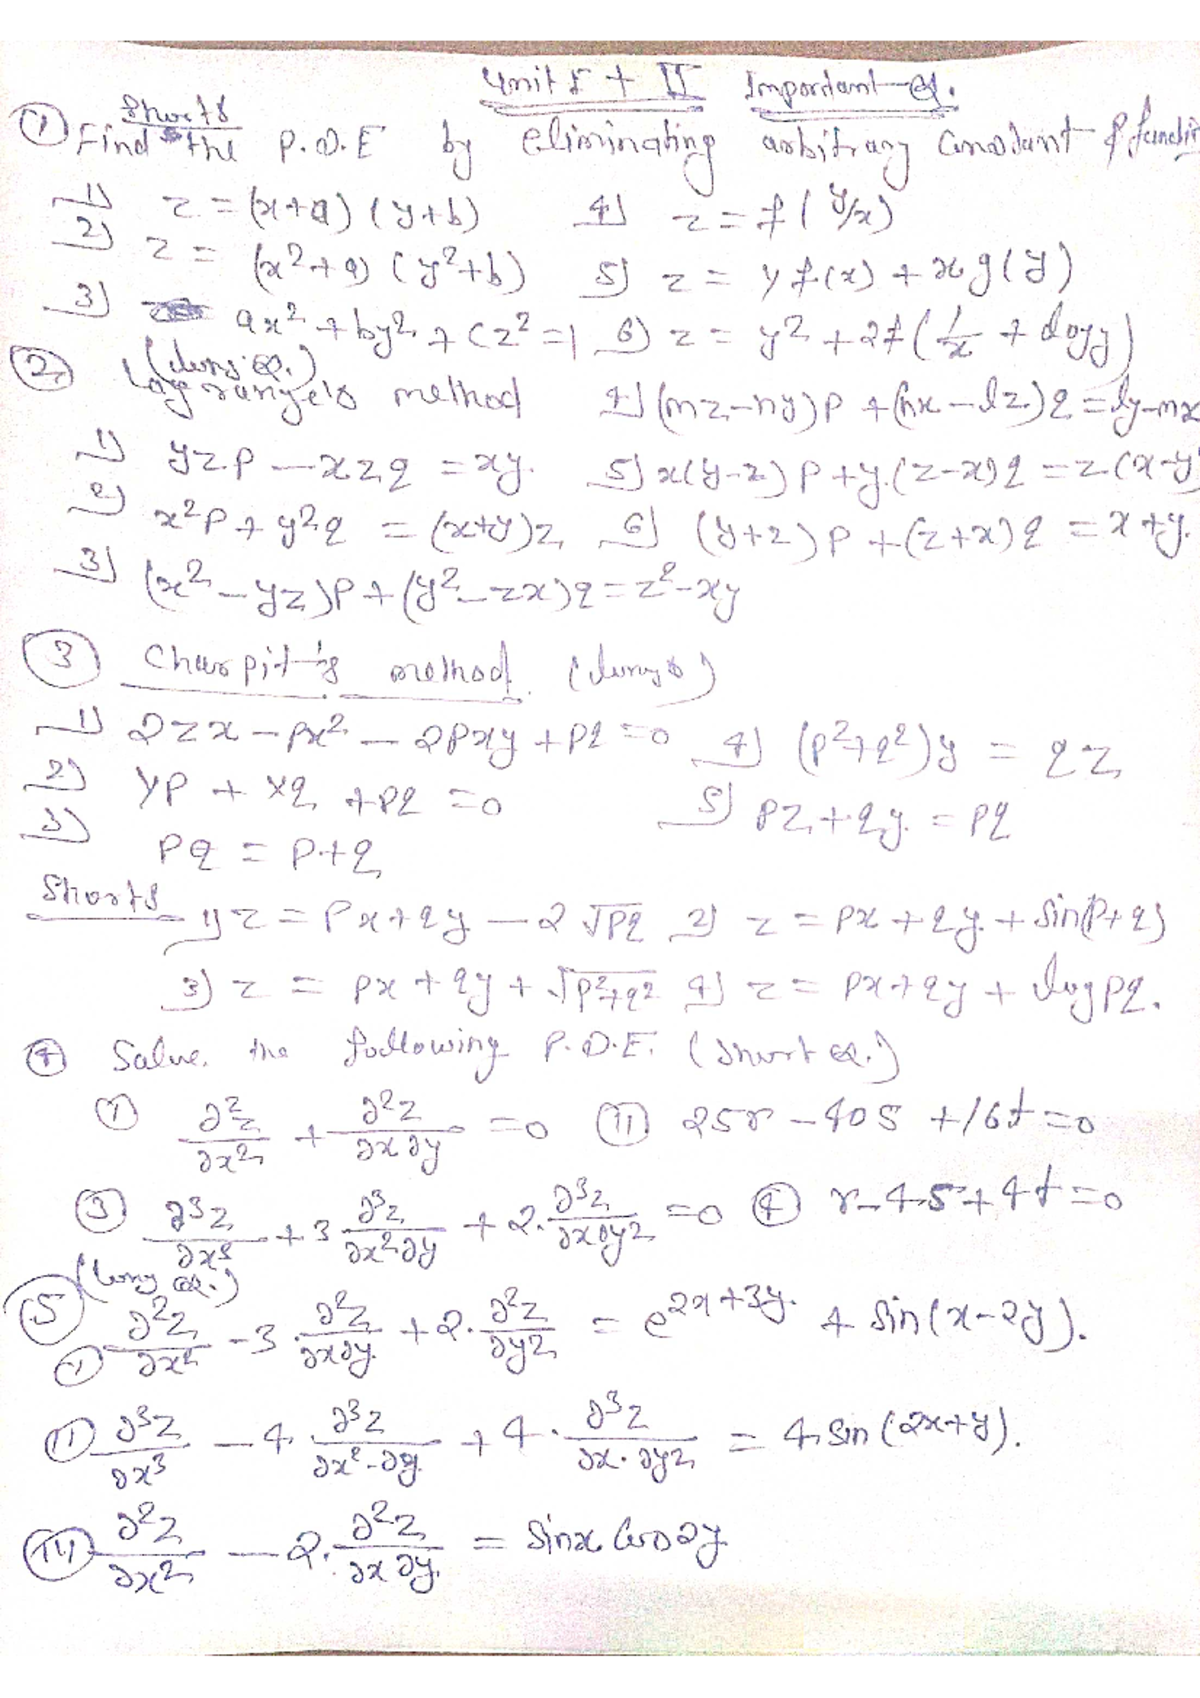 Unit I + II Important Q.
Shorts
① Find the P.D.E by eliminating arbitrary constant & functi
1) z = (x+a) (y+b) 4) z = f(y/x)
2) z = (x²+a) (y²+b) 5) z = y f(x) + x g(y)
3) ax²+by²+cz²=1 6) z = y²+2f(1/x + logy)
(long Q.)
② Lagrange's method 4) (mz-ny)p + (nx-lz)q = ly-mx
1) yzp - xzq = xy. 5) x(y-z)p + y.(z-x)q = z(x-y)
2) x²p + y²q = (x+y)z 6) (y+z)p + (z+x)q = x+y.
3) (x²-yz)p + (y²-zx)q = z²-xy
③ Charpit's method (longs)
1) 2zx - px² - 2pxy + pq = 0 4) (p²+q²)y = qz
2) yp + xq + pq = 0 5) pz + qy. = pq
3) pq = p+q
Shorts 1) z = px+qy - 2√pq 2) z = px + qy + sin(p+q)
3) z = px + qy + √p²+q² 4) z = px+qy + log pq.
④ Solve the following P.D.E. (short Q.)
① ∂²z/∂x² + ∂²z/∂x∂y = 0 ⑪ 25r - 40s + 16t = 0
③ ∂³z/∂x³ + 3 ∂³z/∂x²∂y + 2. ∂³z/∂x∂y² = 0 ④ r - 4s + 4t = 0
(long Q.)
⑤ ① ∂²z/∂x² - 3 ∂²z/∂x∂y. + 2. ∂²z/∂y² = e^2x+3y. + sin(x-2y).
⑪ ∂³z/∂x³ - 4. ∂³z/∂x²-∂y. + 4. ∂³z/∂x.∂y² = 4 sin(2x+y).
∂²z/∂x² - 2. ∂²z/∂x∂y. = sinx cos2y